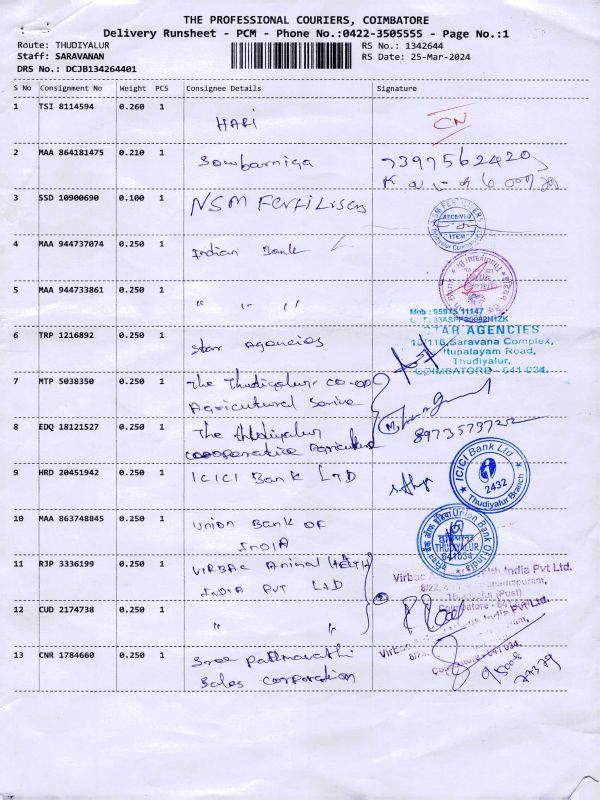 THE PROFESSIONAL COURIERS, COIMBATORE
Delivery Runsheet - PCM - Phone No.:0422-3505555 - Page No.:1
Route: THUDIYALUR
RS No.: 1342644
Staff: SARAVANAN
RS Date: 25-Mar-2024
DRS No.: DCJB134264401
S No Consignment No Weight PCS Consignee Details Signature
1 TSI 8114594 0.260 1
HARI CN
2 MAA 864181475 0.210 1 Sowbarniga 7397562420
3 SSD 10900690 0.100 1 NSM Fertilisers
RECEIVED
4 MAA 944737074 0.250 1 Indian Bank
5 MAA 944733861 0.250 1 " " "
Mob : 95975 11147
STAR AGENCIES
6 TRP 1216892 0.250 1 Star Agencies
Saravana Complex,
Road,
Thudiyalur,
COIMBATORE - 641 034.
7 MTP 5038350 0.250 1 The Thudiyalur co-op
Agricultural Service
8 EDQ 18121527 0.250 1 The thudiyalur
cooperative Agricultural
8973573722
9 HRD 20451942 0.250 1 ICICI Bank LTD
ICICI Bank Ltd
2432
Thudiyalur Branch
10 MAA 863748845 0.250 1 Union Bank OF
INDIA
Union Bank Of India
THUDIYALUR
641034
11 RJP 3336199 0.250 1 VIRBAC Animal HEALTH
INDIA PVT LTD
Virbac India Pvt Ltd.
12 CUD 2174738 0.250 1 " "
India Pvt Ltd.
13 CNR 1784660 0.250 1 Sree Pathmavathi
Sales corporation